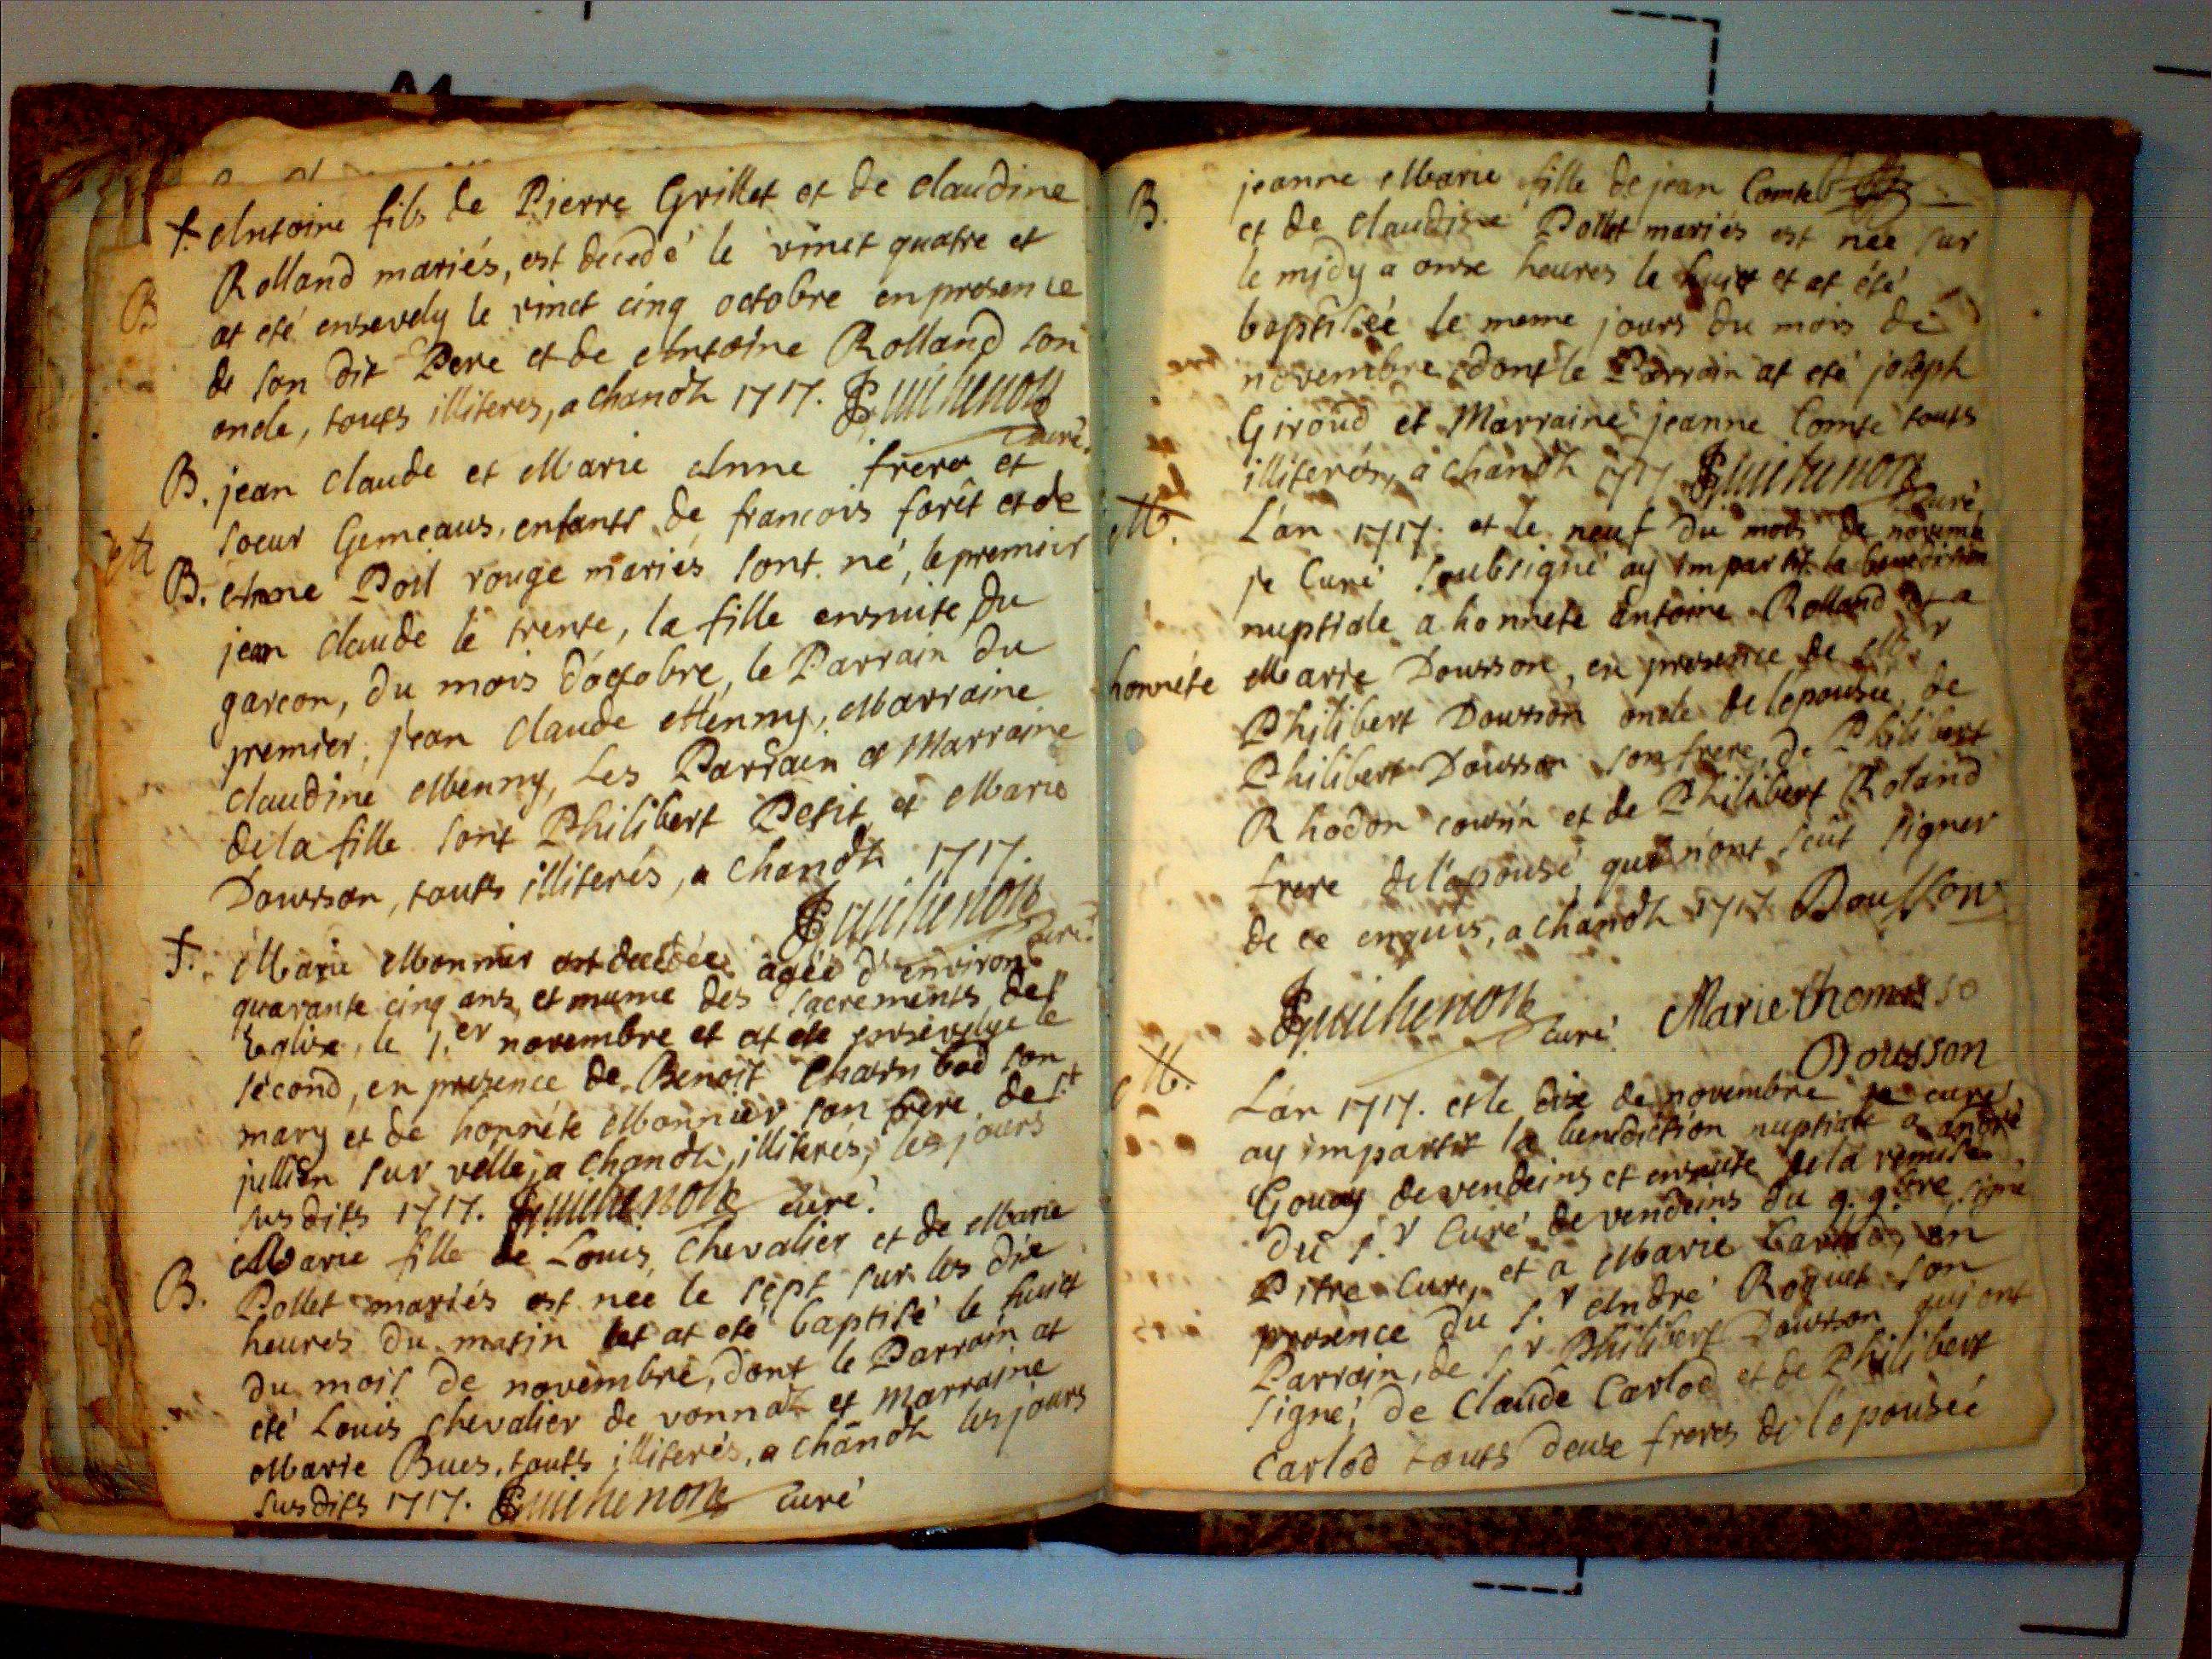 †. Antoine fils de Pierre Grillet et de Claudine
Rolland mariés, est decedé le vinct quatre et
B
at eté ensevely le vinct cinq octobre en presence
de son dit Pere et de Antoine Rolland son
oncle, touts illiteres, a chandh 1717. Guichenon
curé.
B. jean Claude et Marie Anne frere et
soeur Gemeaus, enfants de francois forêt et de
B. Anne Poil rouge mariés sont né, le premier
jean Claude le trente, la fille ensuite du
garcon, du mois d'octobre, le Parrain du
premier, jean Claude Menny, Marraine
Claudine Menny, Les Parrain et Marraine
de la fille sont Philibert Petit et Marie
Dousson, touts illiterés, a chandh 1717.
Guichenon
curé.
†. Marie Monnier est decedée agée d'environ
quarante cinq ans, et munie des sacrements de l'
Eglise, le 1.er novembre et at eté ensevelye le
second, en presence de Benoit Charnbod son
mary et de honnéte Monnier son frere de s.t
jullien sur velle, a chandh, illiterés, les jours
susdits 1717. Guichenon curé.
B. Marie fille de Louis Chevalier et de Marie
Pollet mariés est née le sept sur les dix
heures du matin et at eté baptisé le huict
du mois de novembre, dont le Parrain at
eté Louis chevalier de vonnaz et Marraine
Marie Bues, touts illiterés, a chandh les jours
susdits 1717. Guichenon curé
B. jeanne Marie fille de jean Comte
et de Claudine Pollet mariés est née sur
le midy a onse heures le huict et at été
baptisée le meme jours du mois de
novembre dont le Parrain at eté joseph
Giroud et Marraine jeanne Comte touts
illiterés, a chandh 1717 Guichenon
curé
M. L'an 1717. et le neuf du mois de novemb
je Curé soubsigné ay impartit la benediction
nuptiale a honnete Antoine Rolland et a
honnéte Marie Dousson, en presence de M.r
Philibert Dousson oncle de l'epousée, de
Philibert Dousson son frere, de Philibert
Rhodon cousin et de Philibert Roland
frere de l'epousé qui n'ont scût signer
de ce enquis, a chandh 1717. Dousson
Guichenon curé Marie thomasso
Dousson
M. L'an 1717. et le dise de novembre je curé
ay impartit la benediction nuptiale a andré
Gouay de vendeins et ensuite de la remise
du s.r Curé de vendeins du 9. 9.bre signé
Pitre Curé, et a Marie Carlod, en
presence du s.r André Roquet son
Parrain, de s.r Philibert Dousson qui ont
signé, de Claude Carlod et de Philibert
Carlod touts deuse freres de l'epousée